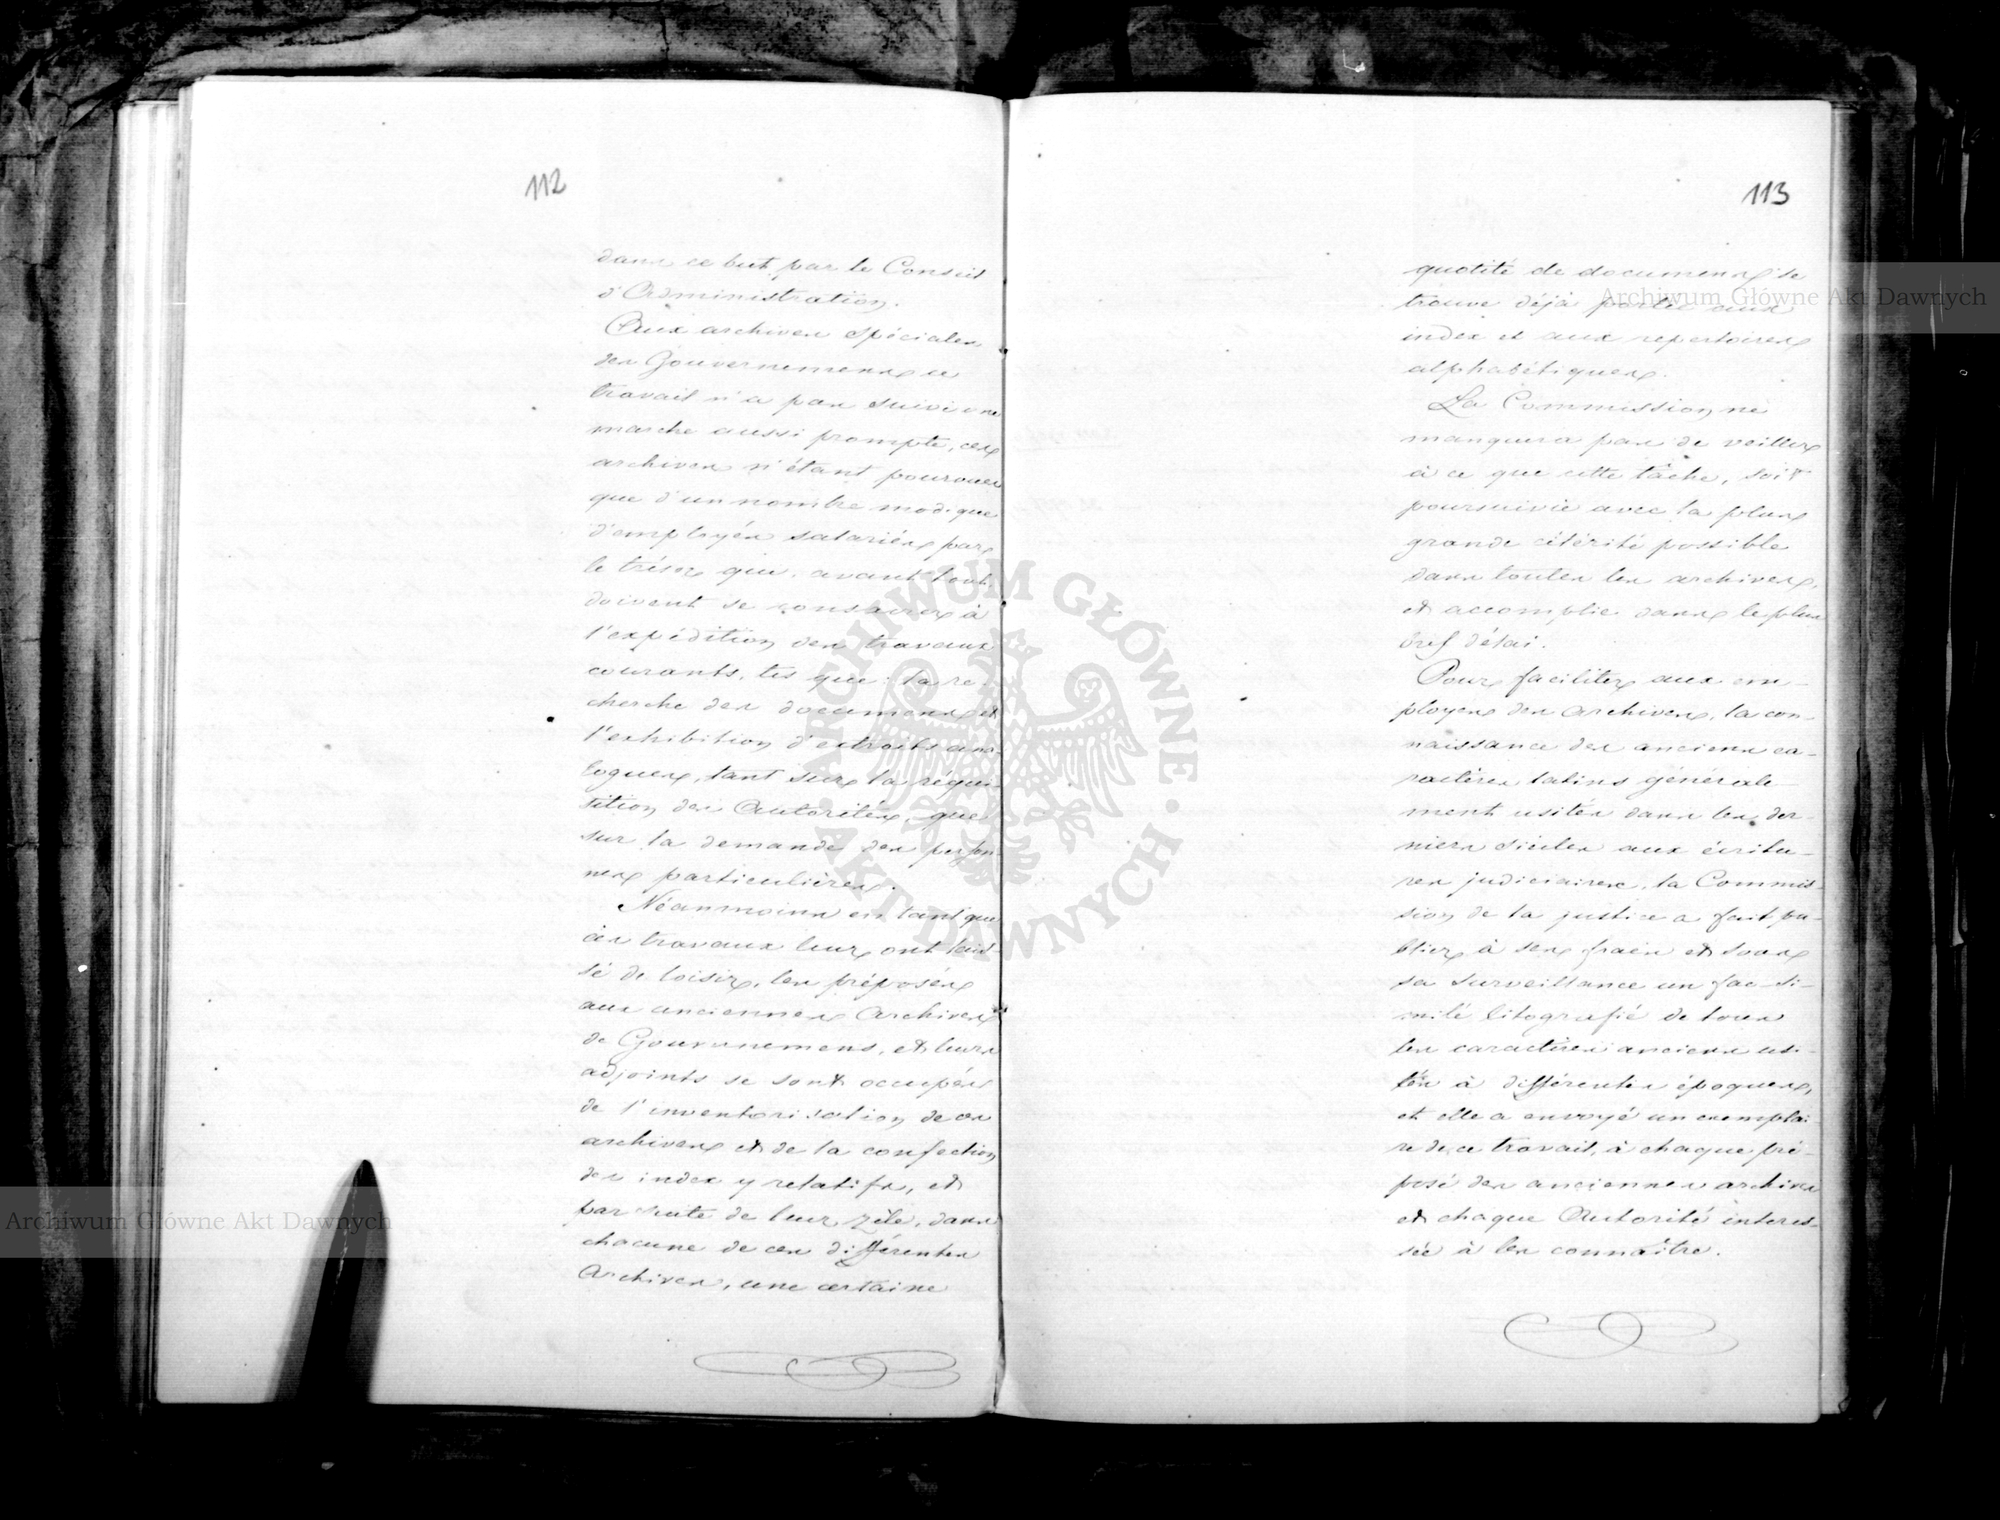 112
dans ce but par le Conseil
d'Administration.
Aux archives spéciales
des Gouvernemens ce
travail n'a pas suivi une
marche aussi prompte, ces
archives n'étant pourvues
que d'un nombre modique
d'employés salariés par
le trésor que, avant tout,
doivent se consacrer à
l'expédition des travaux
courants, tes que: la re-
cherche des documens et
l'exhibition d'extraits ana-
logues, tant sur la réqui-
sition des Autorités, que
sur la demande des person-
nes particulières.
Néanmoins en tant que
ces travaux leur ont lais-
sé de loisir, les préposés
aux anciennes Archives
de Gouvernemens, et leurs
adjoints se sont occupés
de l'inventorisation de ces
archives et de la confection
des index y relatifs, et
par suite de leur zèle, dans
chacune de ces différentes
Archives, une certaine
113
quotité de documens se
trouve déjà portée aux
index et aux repertoires
alphabétiques.
La Commission ne
manquera pas de veiller
à ce que cette tâche, soit
poursuivie avec la plus
grande célérité possible
dans toutes les archives,
et accomplie dans le plus
bref délai.
Pour faciliter aux em-
ployés des Archives, la con-
naissance des anciens ca-
ractères latins générale-
ment usités dans les der-
niers siècles aux écritu-
res judiciaires, la Commis-
sion de la justice a fait pu-
blier à ses frais et sous
sa surveillance un fac-si-
milé litografié de tous
les caractères anciens usi-
tés à différentes époques,
et elle a envoyé un exemplai-
re de ce travail, à chaque pré-
posé des anciennes archives
et chaque Autorité intéres-
sée à les connaître.
Archiwum Główne Akt Dawnych
Archiwum Główne Akt Dawnych
ARCHIWUM GŁÓWNE
AKT DAWNYCH